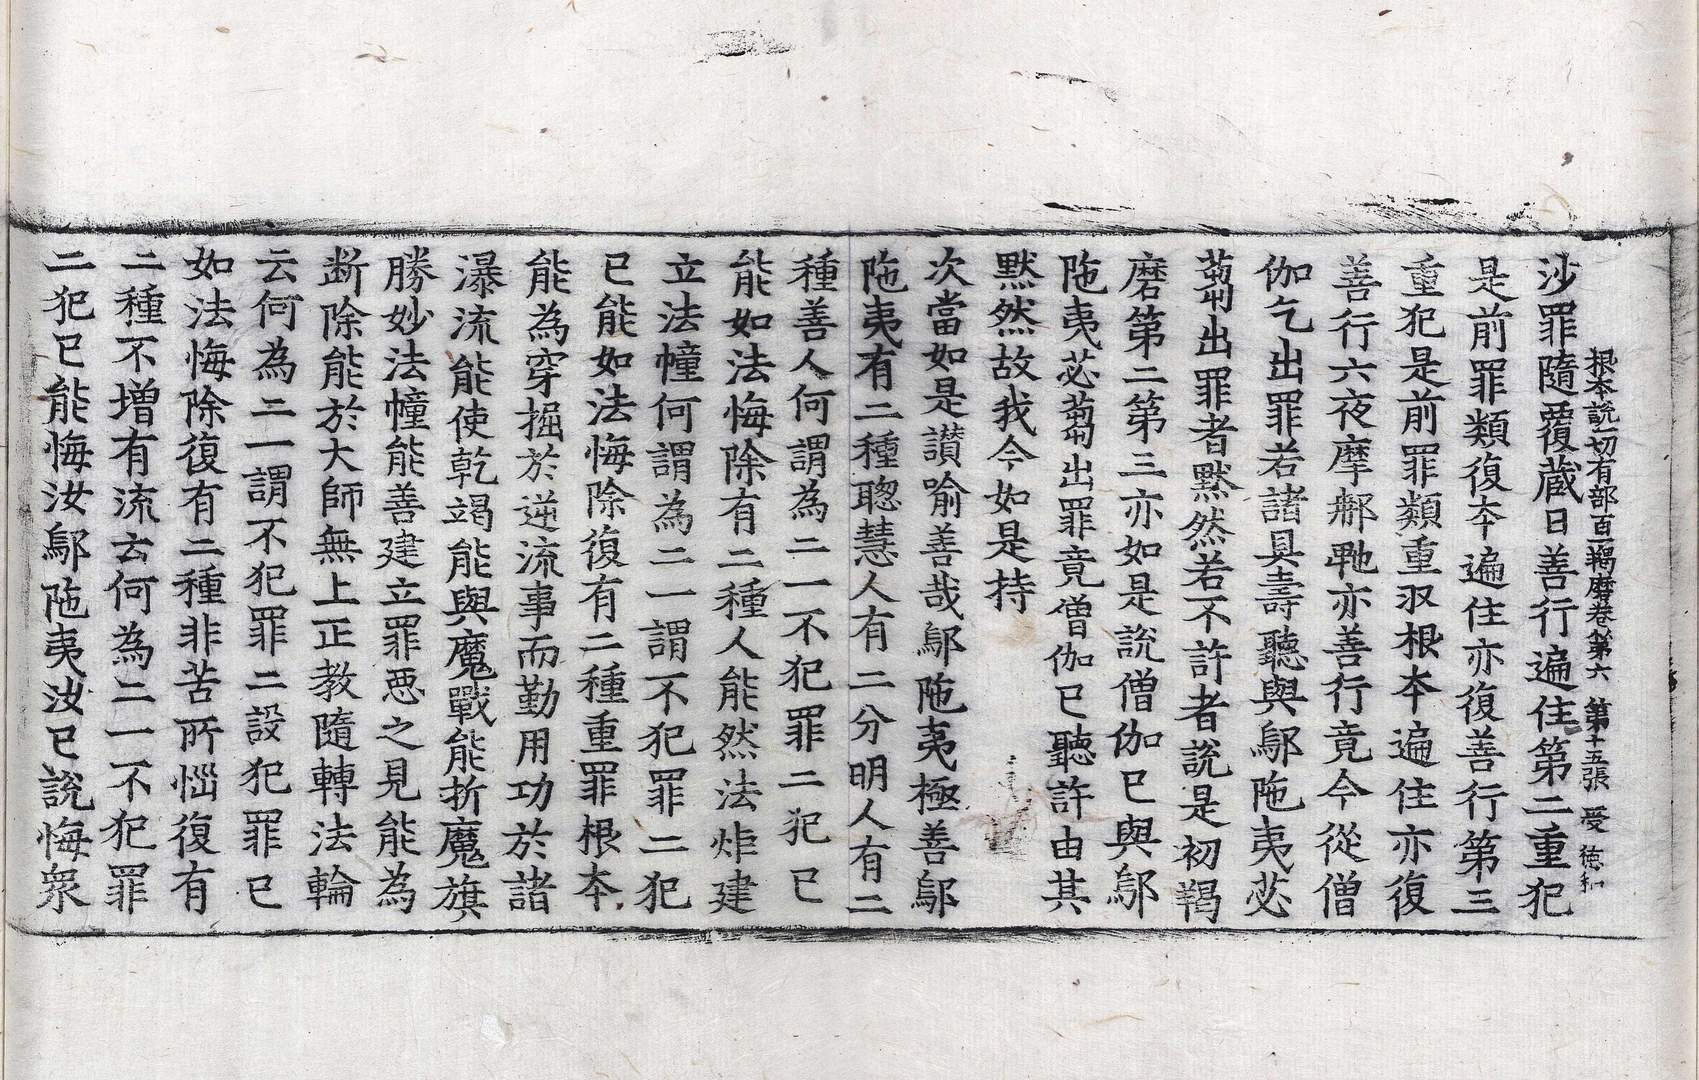 根本說一切有部百一羯磨卷第六 第十五張 受 德和
沙罪隨覆藏日善行遍住第二重犯
是前罪類復夲遍住亦復善行第三
重犯是前罪類重収根夲遍住亦復
善行六夜摩㮈𠷏亦善行竟今從僧
伽乞出罪若諸具壽聽與鄔陁夷苾
蒭出罪者默然若不許者說是初羯
磨第二第三亦如是說僧伽已與鄔
陁夷苾蒭出罪竟僧伽已聽許由其
默然故我今如是持
次當如是讃喻善哉鄔陁夷極善鄔
陁夷有二種聰慧人有二分明人有二
種善人何謂為二一不犯罪二犯已
能如法悔除有二種人能然法炬建
立法幢何謂為二一謂不犯罪二犯
已能如法悔除復有二種重罪根夲
能為穿掘於逆流事而勤用功於諸
瀑流能使乾竭能與魔戰能折魔旗
勝妙法幢能善建立罪惡之見能為
断除能於大師無上正教隨轉法輪
云何為二一謂不犯罪二設犯罪已
如法悔除復有二種非苦所惱復有
二種不增有流云何為二一不犯罪
二犯已能悔汝鄔陁夷汝已說悔衆